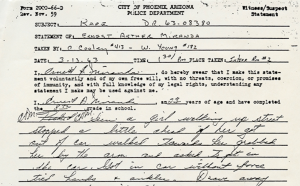 Form 2000-66-D
Rev. Nov. 59
CITY OF PHOENIX, ARIZONA
POLICE DEPARTMENT
Witness/Suspect
Statement
SUBJECT: Rape D.R. 63-08380
STATEMENT OF: ERNEST ARTHUR MIRANDA
TAKEN BY: C. Cooley #413 - W. Young #182
DATE: 3-13-63 TIME: 1:30 Pm PLACE TAKEN: Interr Rm #2
I, Ernest A. Miranda, do hereby swear that I make this
statement voluntarily and of my own free will, with no threats, coercion, or promises
of immunity, and with full knowledge of my legal rights, understanding any
statement I make may be used against me.
I, Ernest A. Miranda, am years of age and have completed
the 8th grade in school.
seen a girl walking up street
stopped a little ahead of her got
out of car walked towards her grabbed
her by the arm and asked to get in
the car. Got in car without force
tied hands & ankles. Drove away